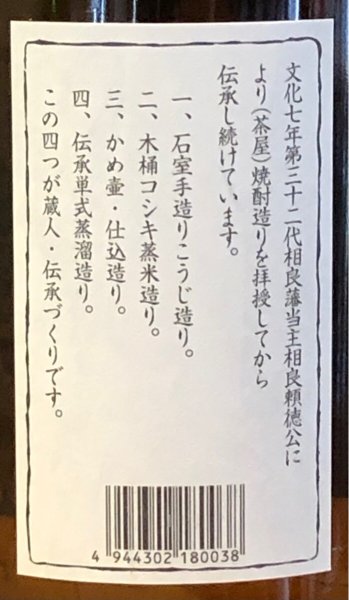 文化七年第三十二代相良藩当主相良頼徳公に
より(茶屋)焼酎造りを拝授してから
伝承し続けています。
一、石室手造りこうじ造り。
二、木桶コシキ蒸米造り。
三、かめ壷・仕込造り。
四、伝承単式蒸溜造り。
この四つが蔵人・伝承づくりです。
4 944302 180038